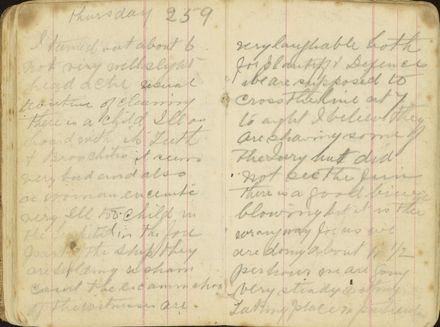 Thursday 25 9
I turned out about 6
not very well slight
head ache usual
routine of cleaning
there is a child Ill on
board with its Teeth
& Bronchitis it seems
very bad and also
a woman enceinte
very Ill too child in
the Hospital in the fore
part of the ship they
are holding a sham
court the examination
of the witnesses are
very laughable both
for plaintiff & Defence
we are supposed to
cross the line at 7
to night I believe they
are shaving some of
the but did
not see the fun
there is a good breeze
blowing but it is the
wrong way for us we
are doing about 10 1/2
per hour we are going
very steady
Taking place in